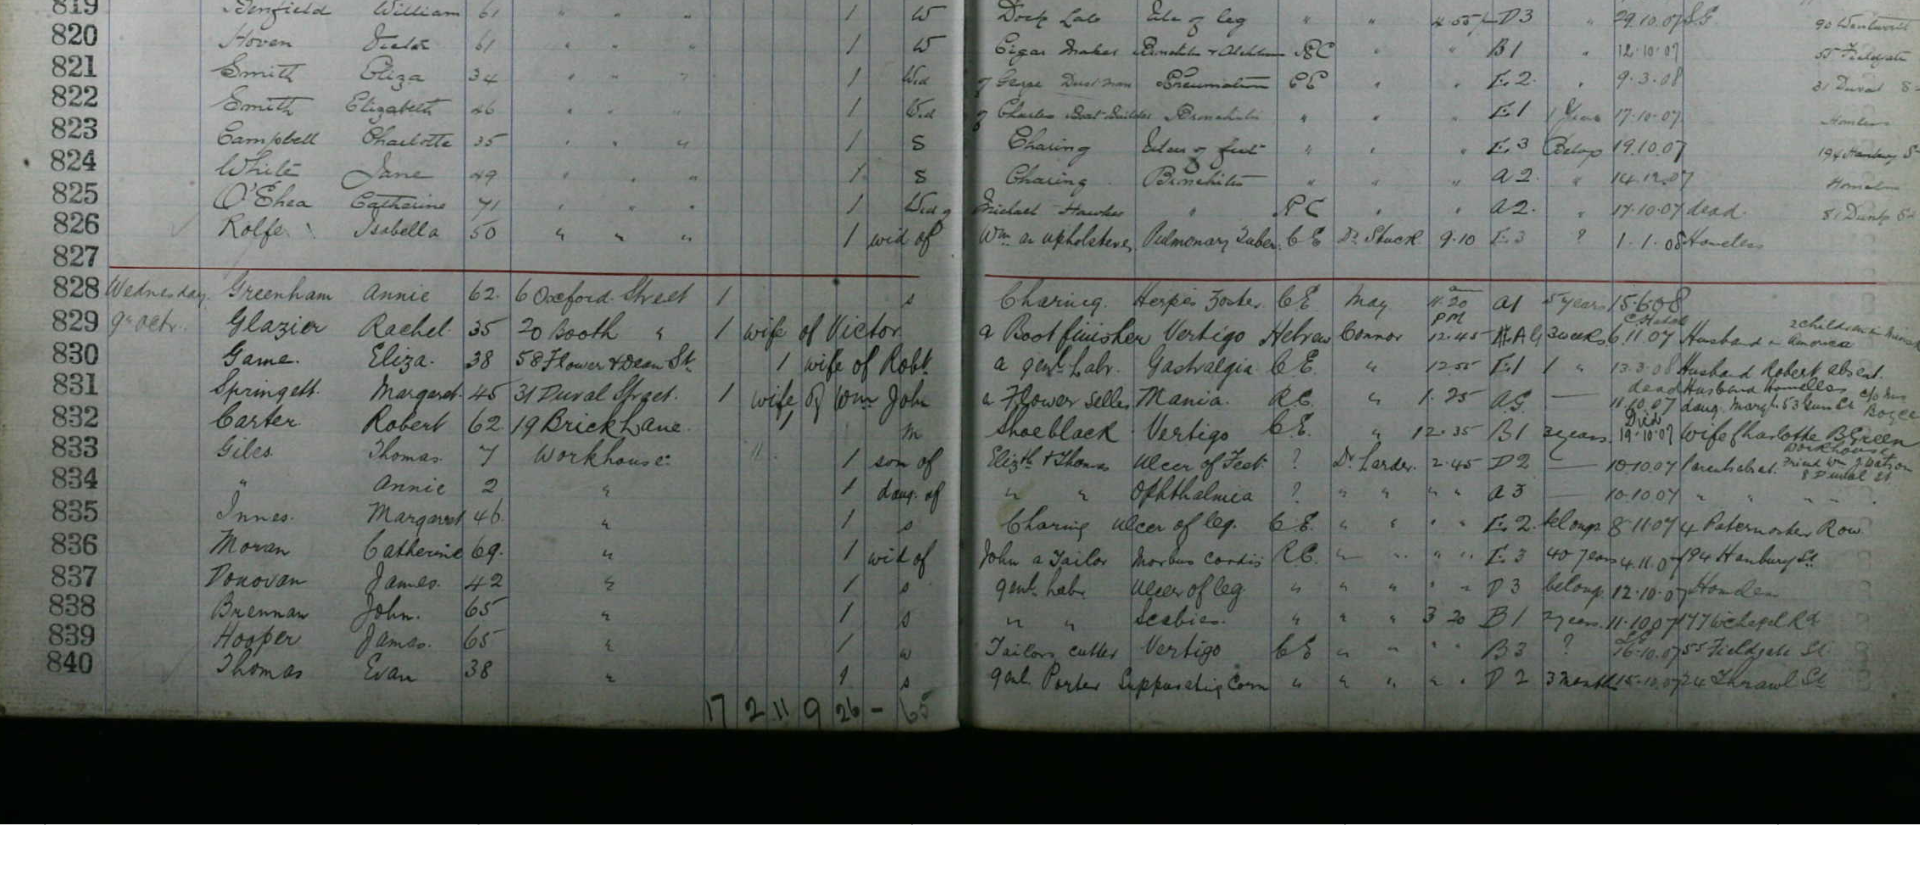 819 Benfield William 61 " " " 1 W Dock Lab Ulcer of leg " " 4.55 D3 " 29.10.07
820 Hoven 61 " " " 1 W Cigar Maker RC " " B1 " 12.10.07 55 Fieldgate
821 Smith Eliza 34 " " " 1 Wid of George Dust man Rheumatism CE " " E2 " 9.3.08 31 Duval
822 Smith Elizabeth 46 " " " 1 Wid of Charles Boat Builder Bronchitis " " " E1 1 year 17.10.07
823 Campbell Charlotte 35 " " " 1 S Charing Ulcer of feet " " " E3 Belongs 19.10.07 194 Hanbury S
824 White Jane 49 " " " 1 S Charing Bronchitis " " " A2 " 14.12.07
825 O'Shea Catherine 71 " " " 1 Wid of Michael Hawker " RC " " A2 " 17.10.07 dead
826 Rolfe Isabella 50 " " " 1 wid of Wm an upholsterer Pulmonary Tuber CE Dr Stuck 9.10 E3 ? 1.1.08 Homeless
827
828 Wednesday Greenham Annie 62 6 Oxford Street 1 s Charing Herpes Zoster CE May 11.20 A1 5 years 15.6.08
829 9th Octr Glazier Rachel 35 20 Booth " 1 wife of Victor a Boot finisher Vertigo Hebrew Connor PM 12.45 3 weeks 6.11.07 Husband in America
830 Game Eliza 38 58 Flower & Dean St 1 wife of Robt a genl Labr Gastralgia CE " 12.55 E1 1 " 13.3.08 Husband Robert absent
831 Springett Margaret 45 31 Duval Street 1 wife of Wm John a Flower seller Mania RC " 1.25 AG — dead 11.10.07 Husband Homeless daug. Margt 53 Gun
832 Carter Robert 62 19 Brick Lane 1 m Shoeblack Vertigo CE " 12.35 B1 3 years Died 19.10.07 wife Charlotte B Green Workhouse
833 Giles Thomas 7 Workhouse 1 son of Elizth & Thomas Ulcer of Feet ? Dr Larder 2.45 D2 — 10.10.07 Parents chet. Friend Wm Watson 8 Duval St
834 " Annie 2 " 1 daug. of " " Ophthalmia ? " " " " A3 — 10.10.07 " "
835 Innes Margaret 46 " 1 s Charing Ulcer of leg CE " " " " E2 belongs 8.11.07 4 Paternoster Row
836 Moran Catherine 69 " 1 wid of John a Tailor Morbus Cordis RC " " " " E3 40 years 4.11.07 194 Hanbury St
837 Donovan James 42 " 1 s genl Labr Ulcer of leg " " " " " D3 belong 12.10.07
838 Brennan John 65 " 1 s " " Scabies " " " 3 20 B1 2 years 11.10.07 177 Wchapel Rd
839 Hooper James 65 " 1 w Tailors cutter Vertigo CE " " " " B3 ? 16.10.07 55 Fieldgate St
840 Thomas Evan 38 " 1 s genl Porter Suppurating Corn " " " " " D2 3 months 15.10.07 24 Thrawl St
17 2 11 9 26 – 65